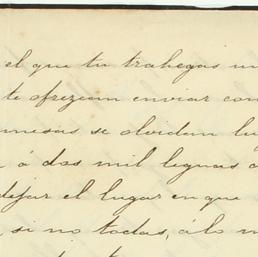 el que tu trahegas un
te ofrezcan enviar con
mesas se olvidan lu
á dos mil leguas d
dejar el lugar en que
si no todas, á lo m